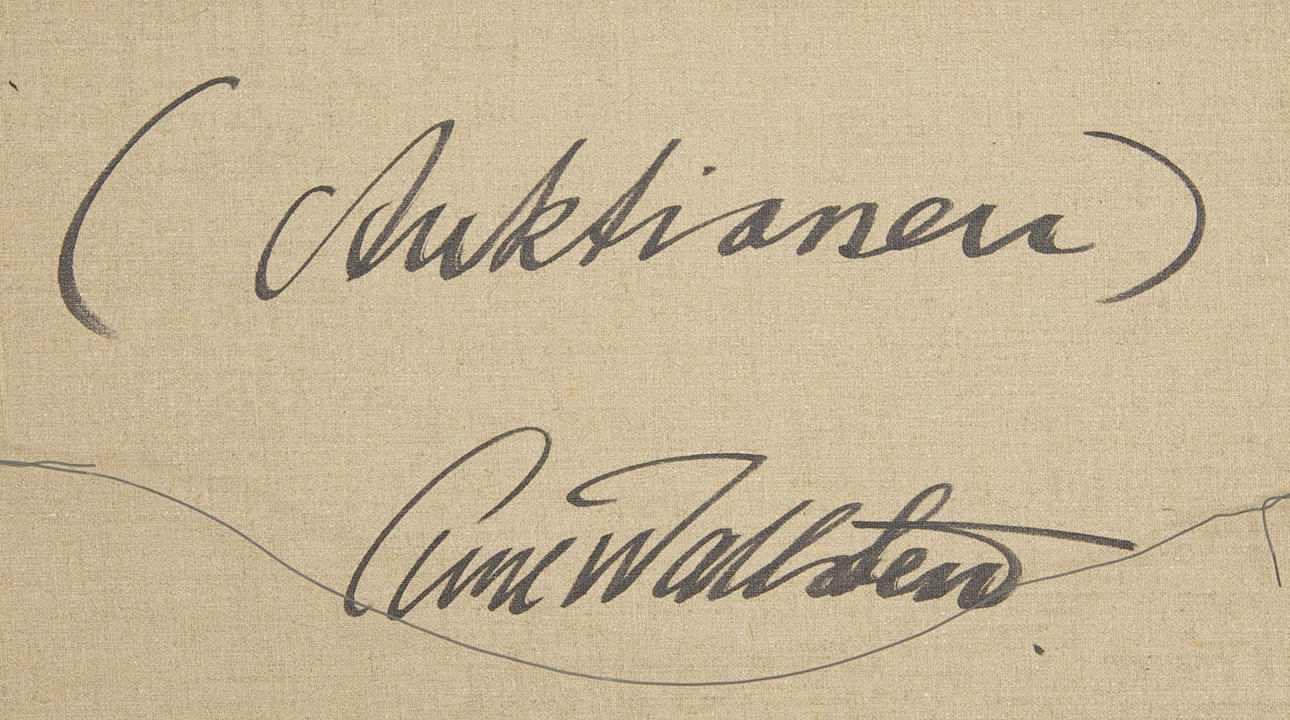 (Auktionen)
Rune Wallsten